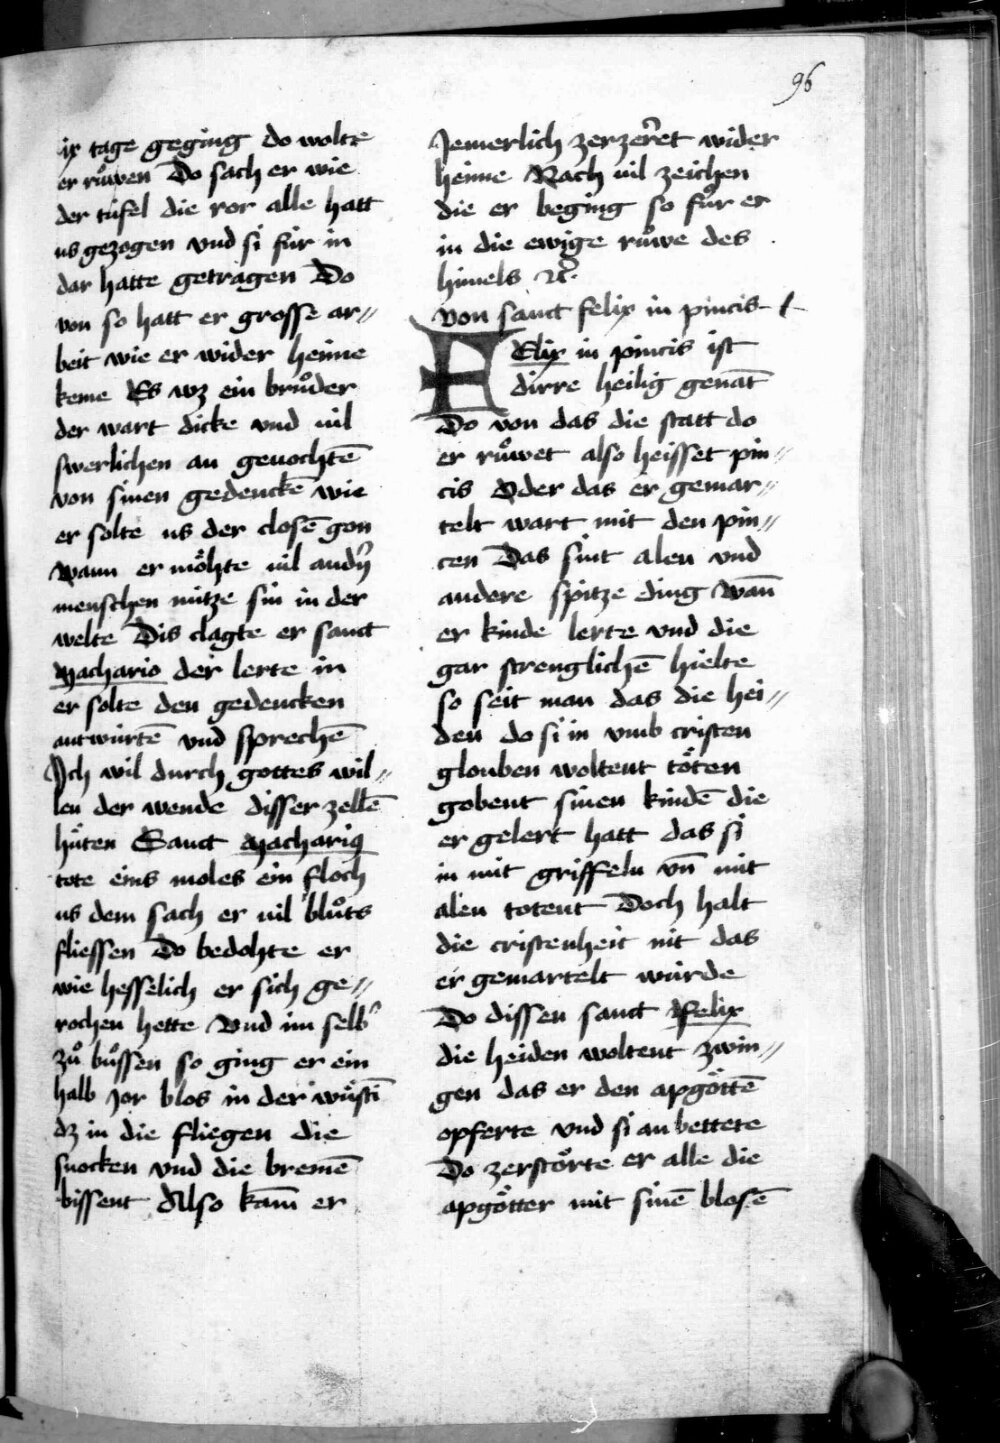 96
ix tage geging do wolte
er ruͦwen Do sach er wie
der tufel die ror alle hatt
us gezogen vnd si fúr in
dar hatte getragen Do
von so hatt er grosse ar〃
beit wie er wider heime
keme Es wz ein bruͦder
der wart dicke vnd uil
swerlichen an geuochtē
von sinen gedenckē wie
er solte us der closē gon
wann er moͤhte uil andn̄
menschen nútze sin in der
welte Dis clagte er sanct
Machario der lerte in
er solte den gedencken
antwúrtē vnd sprechē
Ich wil durch gottes wil〃
len der wende disser zellē
huͤten Sanct Machariꝯ
tote eins moles ein floch
us dem sach er uil bluͦts
fliessen Do bedohte er
wie hesselich er sich ge〃
rochen hette Vnd im selbᷣ
zuͦ buͦssen so ging er ein
halb Jor blos in der wuͤstī
dz in die fliegen die
snocken vnd die bremē
bissent Also kam̄ er
Jemerlich zerzerꝛet wider
heime Nach uil zeichen
die er beging so fuͦr er
in die ewige ruͦwe des
himels ꝛc̄
von sanct felix in pincis
FElix in pincis ist
dirre heilig genāt
Do von das die statt do
er ruͦwet also heisset pin〃
cis Oder das er gemar〃
telt wart mit den pin〃
cen Das sint alen vnd
andere spitze ding wan̄
er kinde lerte vnd die
gar strenglichē hielte
so seit man das die hei〃
den do si in vmb cristen
glouben woltent toͤten
gobent sinen kindē die
er gelert hatt das si
in mit griffeln vn̄ mit
alen totent Doch halt
die cristenheit nit das
er gemartelt wúrde
Do dissen sanct Felix
die heiden woltent zwin〃
gen das er den apgoͤttē
opferte vnd si an bettete
Do zerstoͤrte er alle die
apgoͤtter mit sinē blosē